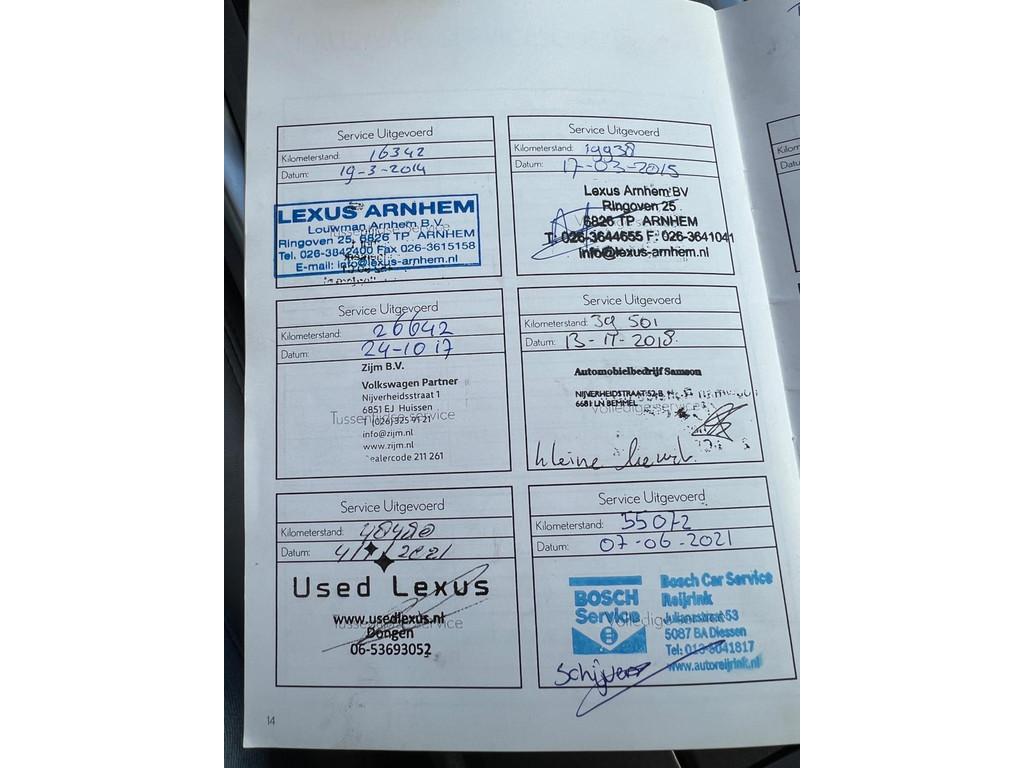 Service Uitgevoerd
Kilometerstand: 16342
Datum: 19-3-2014
LEXUS ARNHEM
Louwman Arnhem B.V.
Ringoven 25, 6826 TP ARNHEM
Tel. 026-3842400 Fax 026-3615158
E-mail: info@lexus-arnhem.nl
Service Uitgevoerd
Kilometerstand: 19938
Datum: 17-03-2015
Lexus Arnhem BV
Ringoven 25
6826 TP ARNHEM
T. 026-3644655 F: 026-3641041
info@lexus-arnhem.nl
Service Uitgevoerd
Kilometerstand: 26642
Datum: 24-10 17
Zijm B.V.
Volkswagen Partner
Nijverheidsstraat 1
6851 EJ Huissen
Tussentijdse service
T (026) 325 91 21
info@zijm.nl
www.zijm.nl
ealercode 211 261
Service Uitgevoerd
Kilometerstand: 39 501
Datum: 13-11-2018
Automobielbedrijf Samson
NIJVERHEIDSTRAAT 52-B
6681 LN BEMMEL
Volledige service
kleine
Service Uitgevoerd
Kilometerstand: 48480
Datum: 4/ /2021
Used Lexus
www.usedlexus.nl
Tussentijdse service
Dongen
06-53693052
Service Uitgevoerd
Kilometerstand: 55072
Datum: 07-06-2021
BOSCH
Service
Bosch Car Service
Reijrink
Julianastraat 53
5087 BA Diessen
Tel: 013-5041817
www.autoreijrink.nl
14